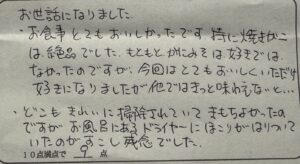 お世話になりました
・お食事とてもおいしかったです 特に焼きがに
は絶品でした。もともとかにみそは好きでは
なかったのですが、今回はとてもおいしくいただけ
好きになりましたが他ではきっと味わえないと…
・どこもきれいに掃除されていてきもちよかったの
ですがお風呂にあるドライヤーにほこりがはりついて
いたのがすこし残念でした。
10点満点で 9 点